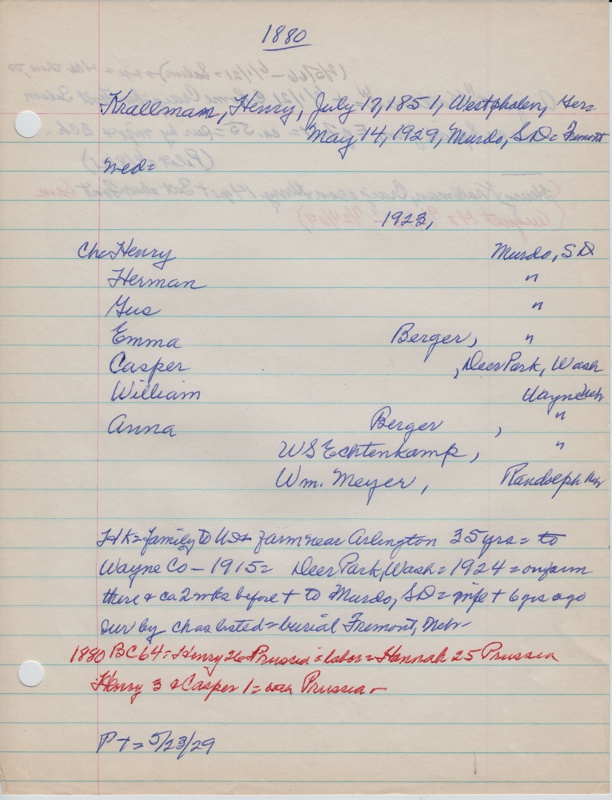 1880
Krallman, Henry, July 17, 1851, Westphalen, Ger=
May 14, 1929, Murdo, SD = Fremont
wed=
1923,
Ch= Henry Murdo, SD
Herman "
Gus "
Emma Berger, "
Casper , Deer Park, Wash
William Wayne Neb
Anna Berger , "
WS Echtenkamp, "
Wm. Meyer, Randolph
HK = family to US + farm near Arlington 35 yrs = to
Wayne Co - 1915 = Deer Park, Wash = 1924 = on farm
there + ca 2 wks before + to Murdo, SD = wife + 6 yrs ago
sur by ch as listed = burial Fremont, Nebr-
1880 BC 64 = Henry 26 Prussia = labor = Hannah 25 Prussia
Henry 3 & Casper 1 = Prussia -
P + = 5/23/29